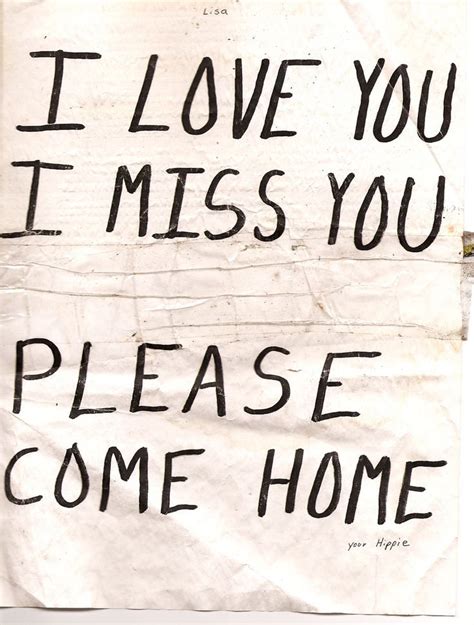 Lisa
I LOVE YOU
I MISS YOU
PLEASE
COME HOME
your Hippie